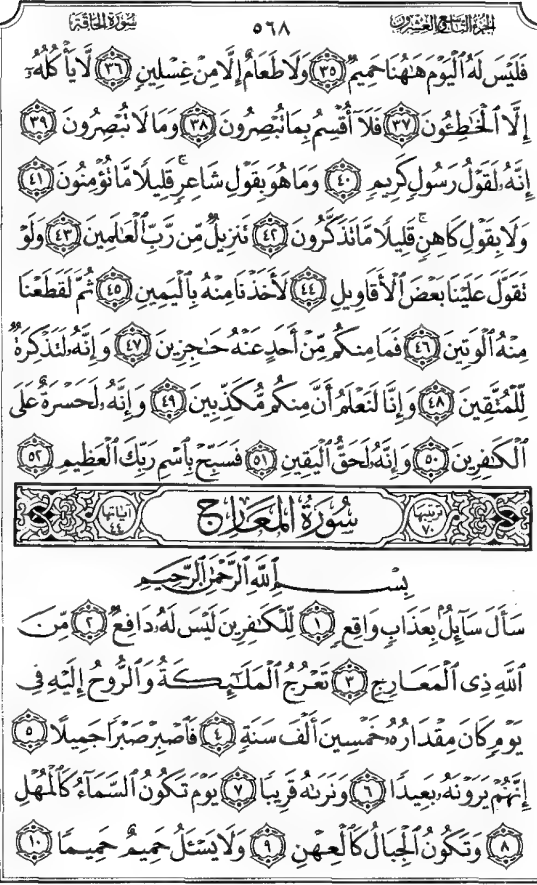 الجزء التاسع والعشرون ٥٦٨ سورة الحاقة
فَلَيْسَ لَهُ ٱلْيَوْمَ هَٰهُنَا حَمِيمٌ ٣٥ وَلَا طَعَامٌ إِلَّا مِنْ غِسْلِينٍ ٣٦ لَّا يَأْكُلُهُۥٓ
إِلَّا ٱلْخَٰطِـُٔونَ ٣٧ فَلَآ أُقْسِمُ بِمَا تُبْصِرُونَ ٣٨ وَمَا لَا تُبْصِرُونَ ٣٩
إِنَّهُۥ لَقَوْلُ رَسُولٍ كَرِيمٍ ٤٠ وَمَا هُوَ بِقَوْلِ شَاعِرٍ ۚ قَلِيلًا مَّا تُؤْمِنُونَ ٤١
وَلَا بِقَوْلِ كَاهِنٍ ۚ قَلِيلًا مَّا تَذَكَّرُونَ ٤٢ تَنزِيلٌ مِّن رَّبِّ ٱلْعَٰلَمِينَ ٤٣ وَلَوْ
تَقَوَّلَ عَلَيْنَا بَعْضَ ٱلْأَقَاوِيلِ ٤٤ لَأَخَذْنَا مِنْهُ بِٱلْيَمِينِ ٤٥ ثُمَّ لَقَطَعْنَا
مِنْهُ ٱلْوَتِينَ ٤٦ فَمَا مِنكُم مِّنْ أَحَدٍ عَنْهُ حَٰجِزِينَ ٤٧ وَإِنَّهُۥ لَتَذْكِرَةٌ
لِّلْمُتَّقِينَ ٤٨ وَإِنَّا لَنَعْلَمُ أَنَّ مِنكُم مُّكَذِّبِينَ ٤٩ وَإِنَّهُۥ لَحَسْرَةٌ عَلَى
ٱلْكَٰفِرِينَ ٥٠ وَإِنَّهُۥ لَحَقُّ ٱلْيَقِينِ ٥١ فَسَبِّحْ بِٱسْمِ رَبِّكَ ٱلْعَظِيمِ ٥٢
ترتيبها ٧٠ سُورَةُ المَعَارِج آياتها ٤٤
بِسْمِ ٱللَّهِ ٱلرَّحْمَٰنِ ٱلرَّحِيمِ
سَأَلَ سَآئِلٌۢ بِعَذَابٍ وَاقِعٍ ١ لِّلْكَٰفِرِينَ لَيْسَ لَهُۥ دَافِعٌ ٢ مِّنَ
ٱللَّهِ ذِى ٱلْمَعَارِجِ ٣ تَعْرُجُ ٱلْمَلَٰٓئِكَةُ وَٱلرُّوحُ إِلَيْهِ فِى
يَوْمٍ كَانَ مِقْدَارُهُۥ خَمْسِينَ أَلْفَ سَنَةٍ ٤ فَٱصْبِرْ صَبْرًا جَمِيلًا ٥
إِنَّهُمْ يَرَوْنَهُۥ بَعِيدًا ٦ وَنَرَىٰهُ قَرِيبًا ٧ يَوْمَ تَكُونُ ٱلسَّمَآءُ كَٱلْمُهْلِ
٨ وَتَكُونُ ٱلْجِبَالُ كَٱلْعِهْنِ ٩ وَلَا يَسْـَٔلُ حَمِيمٌ حَمِيمًا ١٠